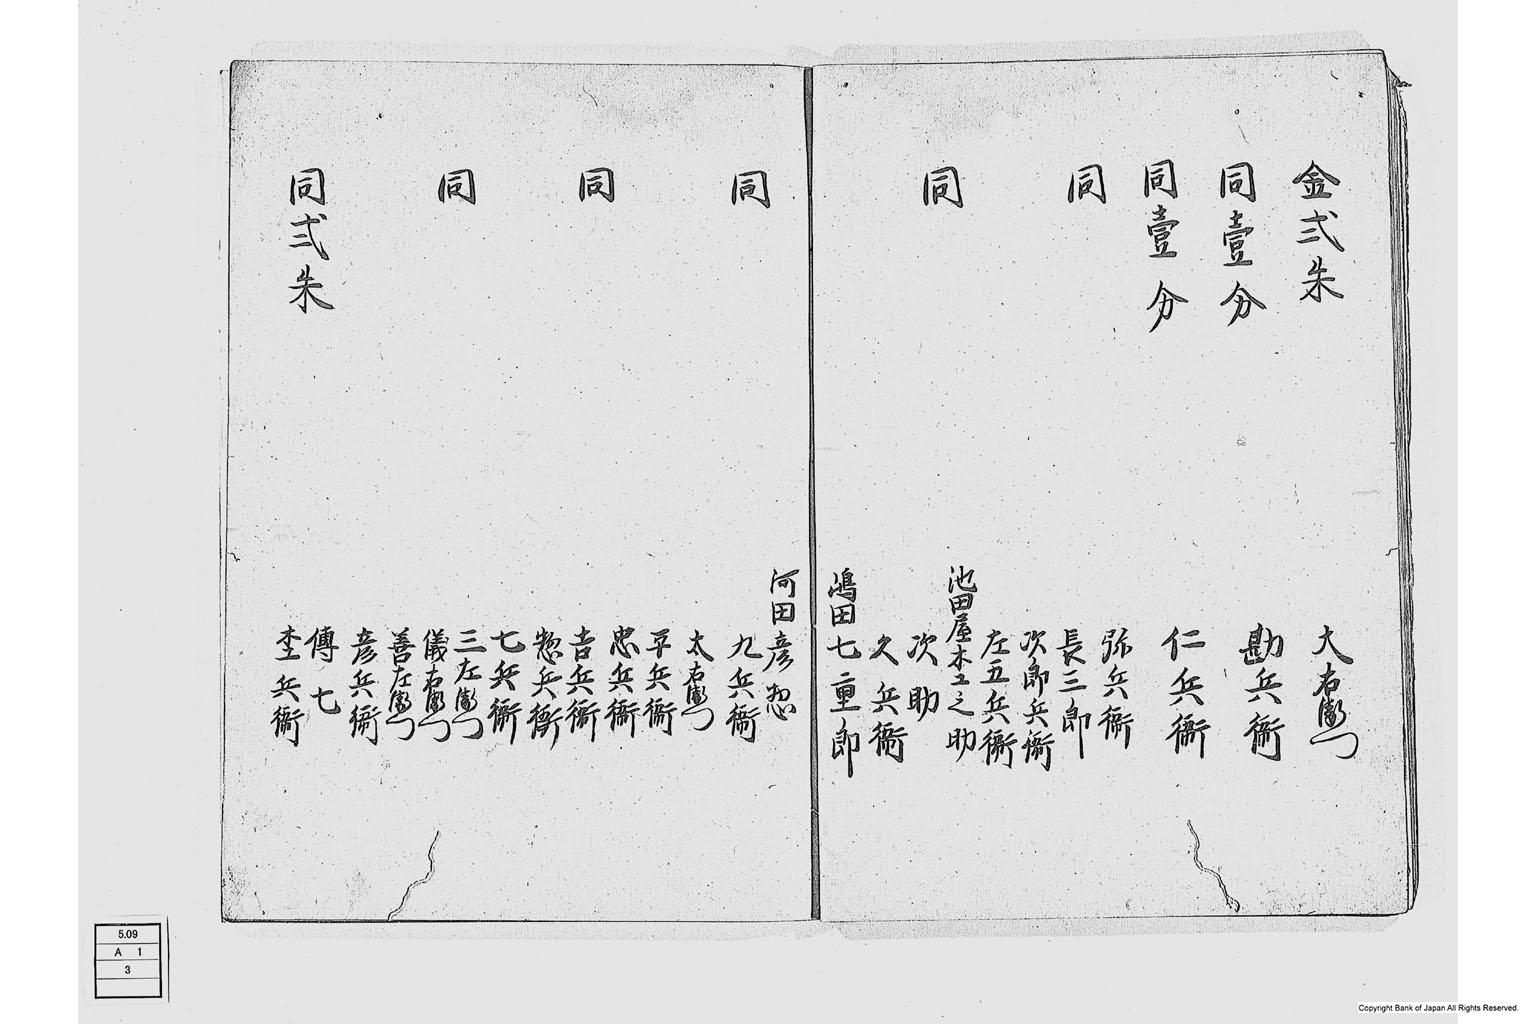 金弐朱
大右衛門
同壹分
勘兵衛
同壹分
仁兵衛
同
弥兵衛
長三郎
次郎兵衛
左五兵衛
同
池田屋杢之助
次助
久兵衛
嶋田七重郎
河田彦惣
同
九兵衛
太右衛門
平兵衛
忠兵衛
同
吉兵衛
惣兵衛
七兵衛
同
三左衛門
儀右衛門
善左衛門
彦兵衛
同弐朱
傳七
杢兵衛
5.09
A 1
3
Copyright Bank of Japan All Rights Reserved.